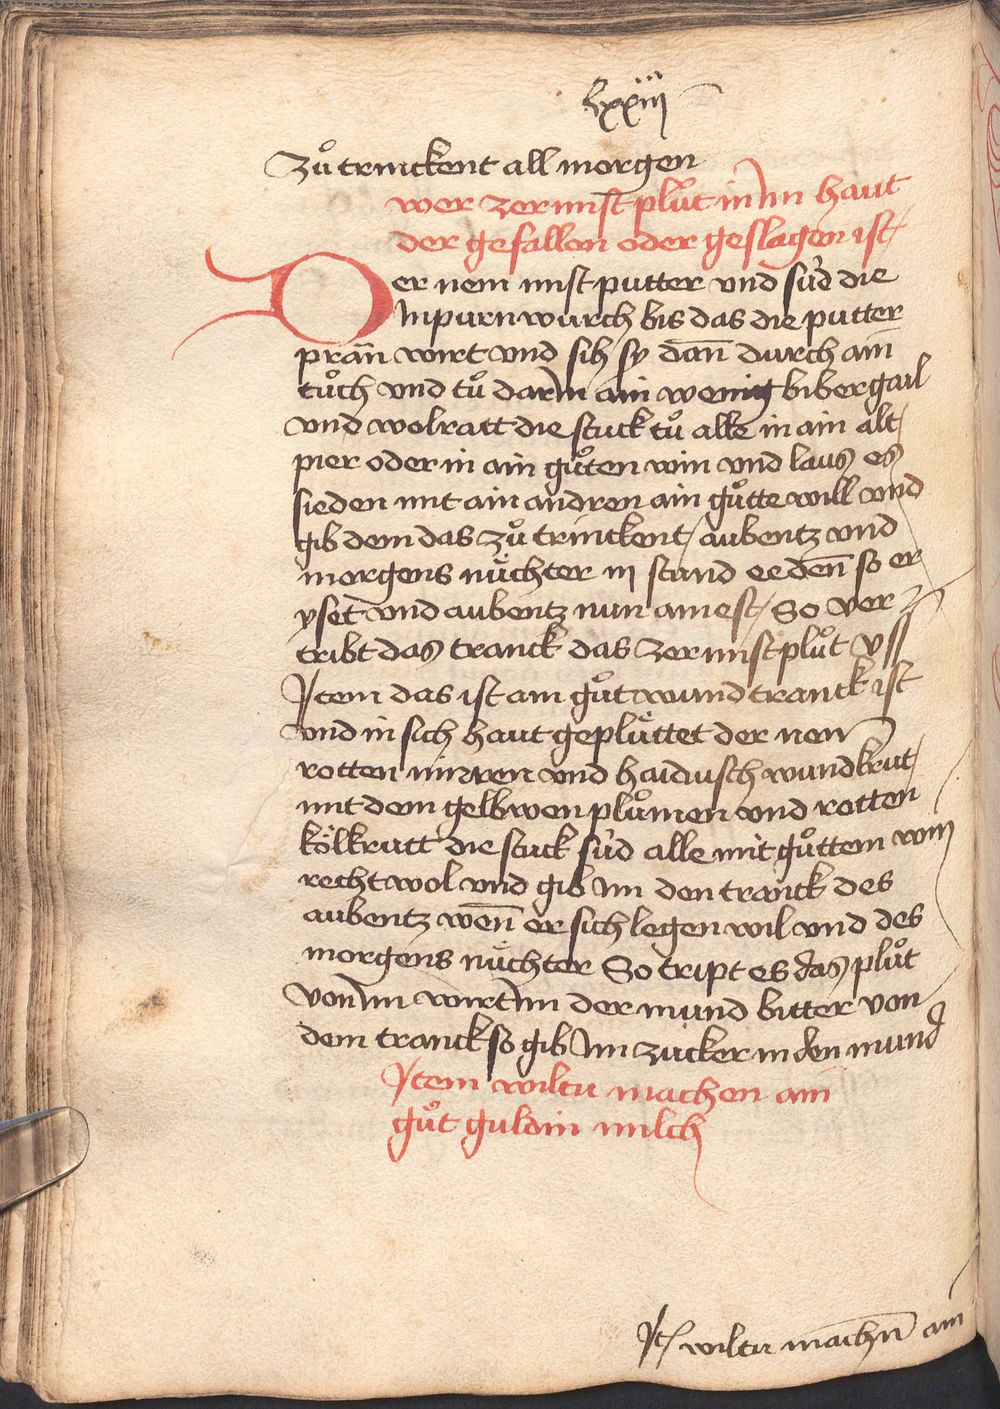 lxxiij
zuͦ trinckent all morgen
wer zerinist pluͦt in im haut
der gefallen oder geslagen ist
Der nem mist putter vnd suͤd die
Inpurn wurch bis das die putter
pran̄ wirt vnd sih sy dan̄ durch ain
tuͦch vnd tuͦ darin ain wenig bibergail
vnd wolratt die stuck tuͦ alle in ain alt
pier oder in ain guͦten win vnd laus es
sieden mit ain andren ain guͦtte will vnd
gib dem das zuͦ trinckent aubentz vnd
morgens nuͤchter iij stund ee den̄ so er
yset vnd aubentz nun ainest So ver
tribt das tranck das zerinist pluͦt vss
Item das ist ain guͦt wund tranck ist
vnd in sich haut gepluͤttet der nem
rotten mirren vnd haidnisch wundkrut
mit dem gelbwen pluͦmen vnd rotten
koͤlkrutt die stuck suͤd alle mit guͦttem win
recht wol vnd gib im den tranck des
aubentz wen̄ er sich legen wil vnd des
morgens nuͤchter So tript es das pluͦt
von im wirt im der mund bitter von
dem tranck so gib im zucker in den mund
Item wiltu machen ain
guͦt guldin milch
Itē wiltu machen ain